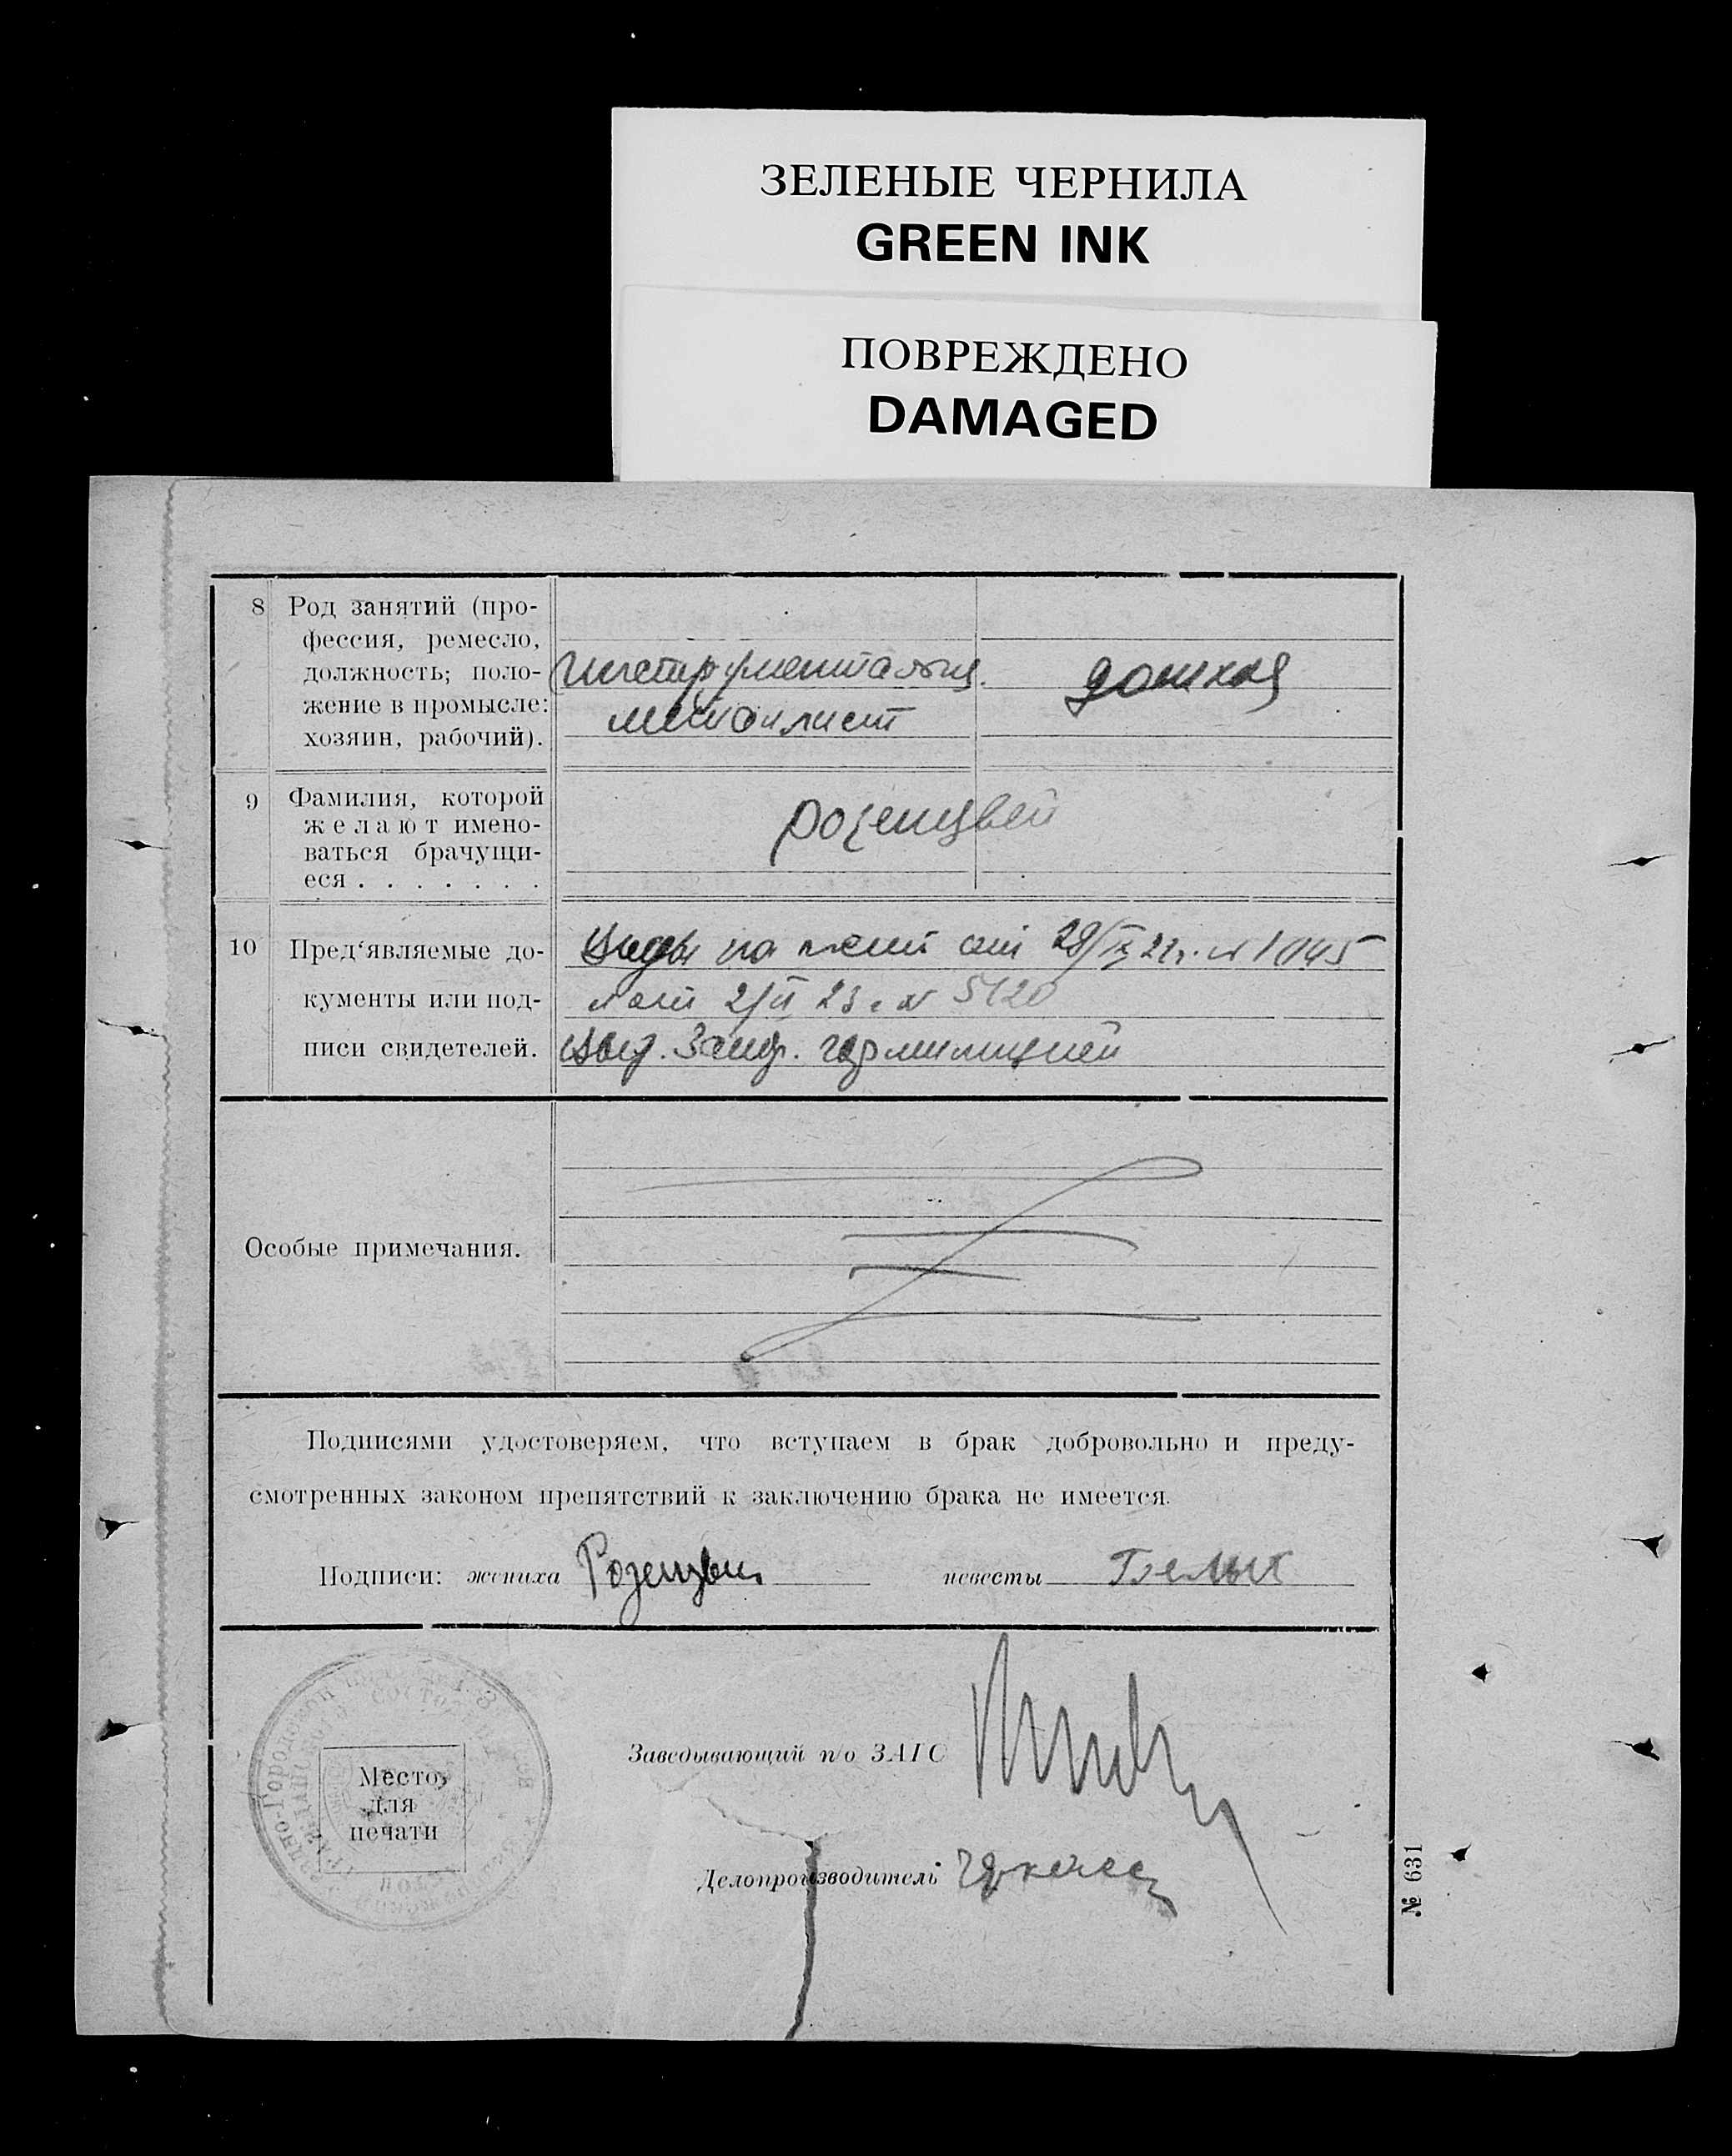 ЗЕЛЕНЫЕ ЧЕРНИЛА
GREEN INK
ПОВРЕЖДЕНО
DAMAGED
8 Род занятий (про-
фессия, ремесло,
должность; поло-
жение в промысле:
хозяин, рабочий).
металлист
домхоз
9 Фамилия, которой
желают имено-
ваться брачущи-
еся . . . . . . .
Розенцвей
10 Пред‘являемые до-
кументы или под-
писи свидетелей.
Виды на жит от 28/ 22г. № 1045
и от 2/II 23 г. № 5120
выд. гормилицией
Особые примечания.
Подписями удостоверяем, что вступаем в брак добровольно и преду-
смотренных законом препятствий к заключению брака не имеется.
Подписи: жениха Розенцвей невесты Белых
Заведывающий п/о ЗАГС
Место
для
печати
Делопроизводитель
№ 631